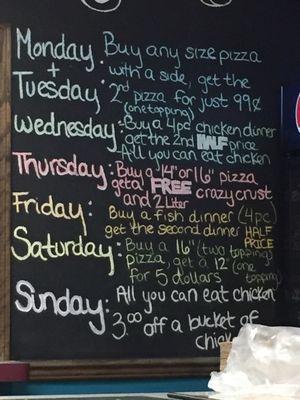 Monday: Buy any size pizza
+ with a side, get the
Tuesday 2nd pizza for just 99¢
(one topping)
Wednesday: Buy a 4pc chicken dinner
get the 2nd HALF price
All you can eat chicken
Thursday: Buy a 14" or 16" pizza
get a FREE crazy crust
and 2 Liter
Friday: Buy a fish dinner (4pc)
get the second dinner HALF
PRICE
Saturday: Buy a 16" (two topping)
pizza, get a 12" (one
for 5 dollars topping)
Sunday: All you can eat chicken
3.00 off a bucket of